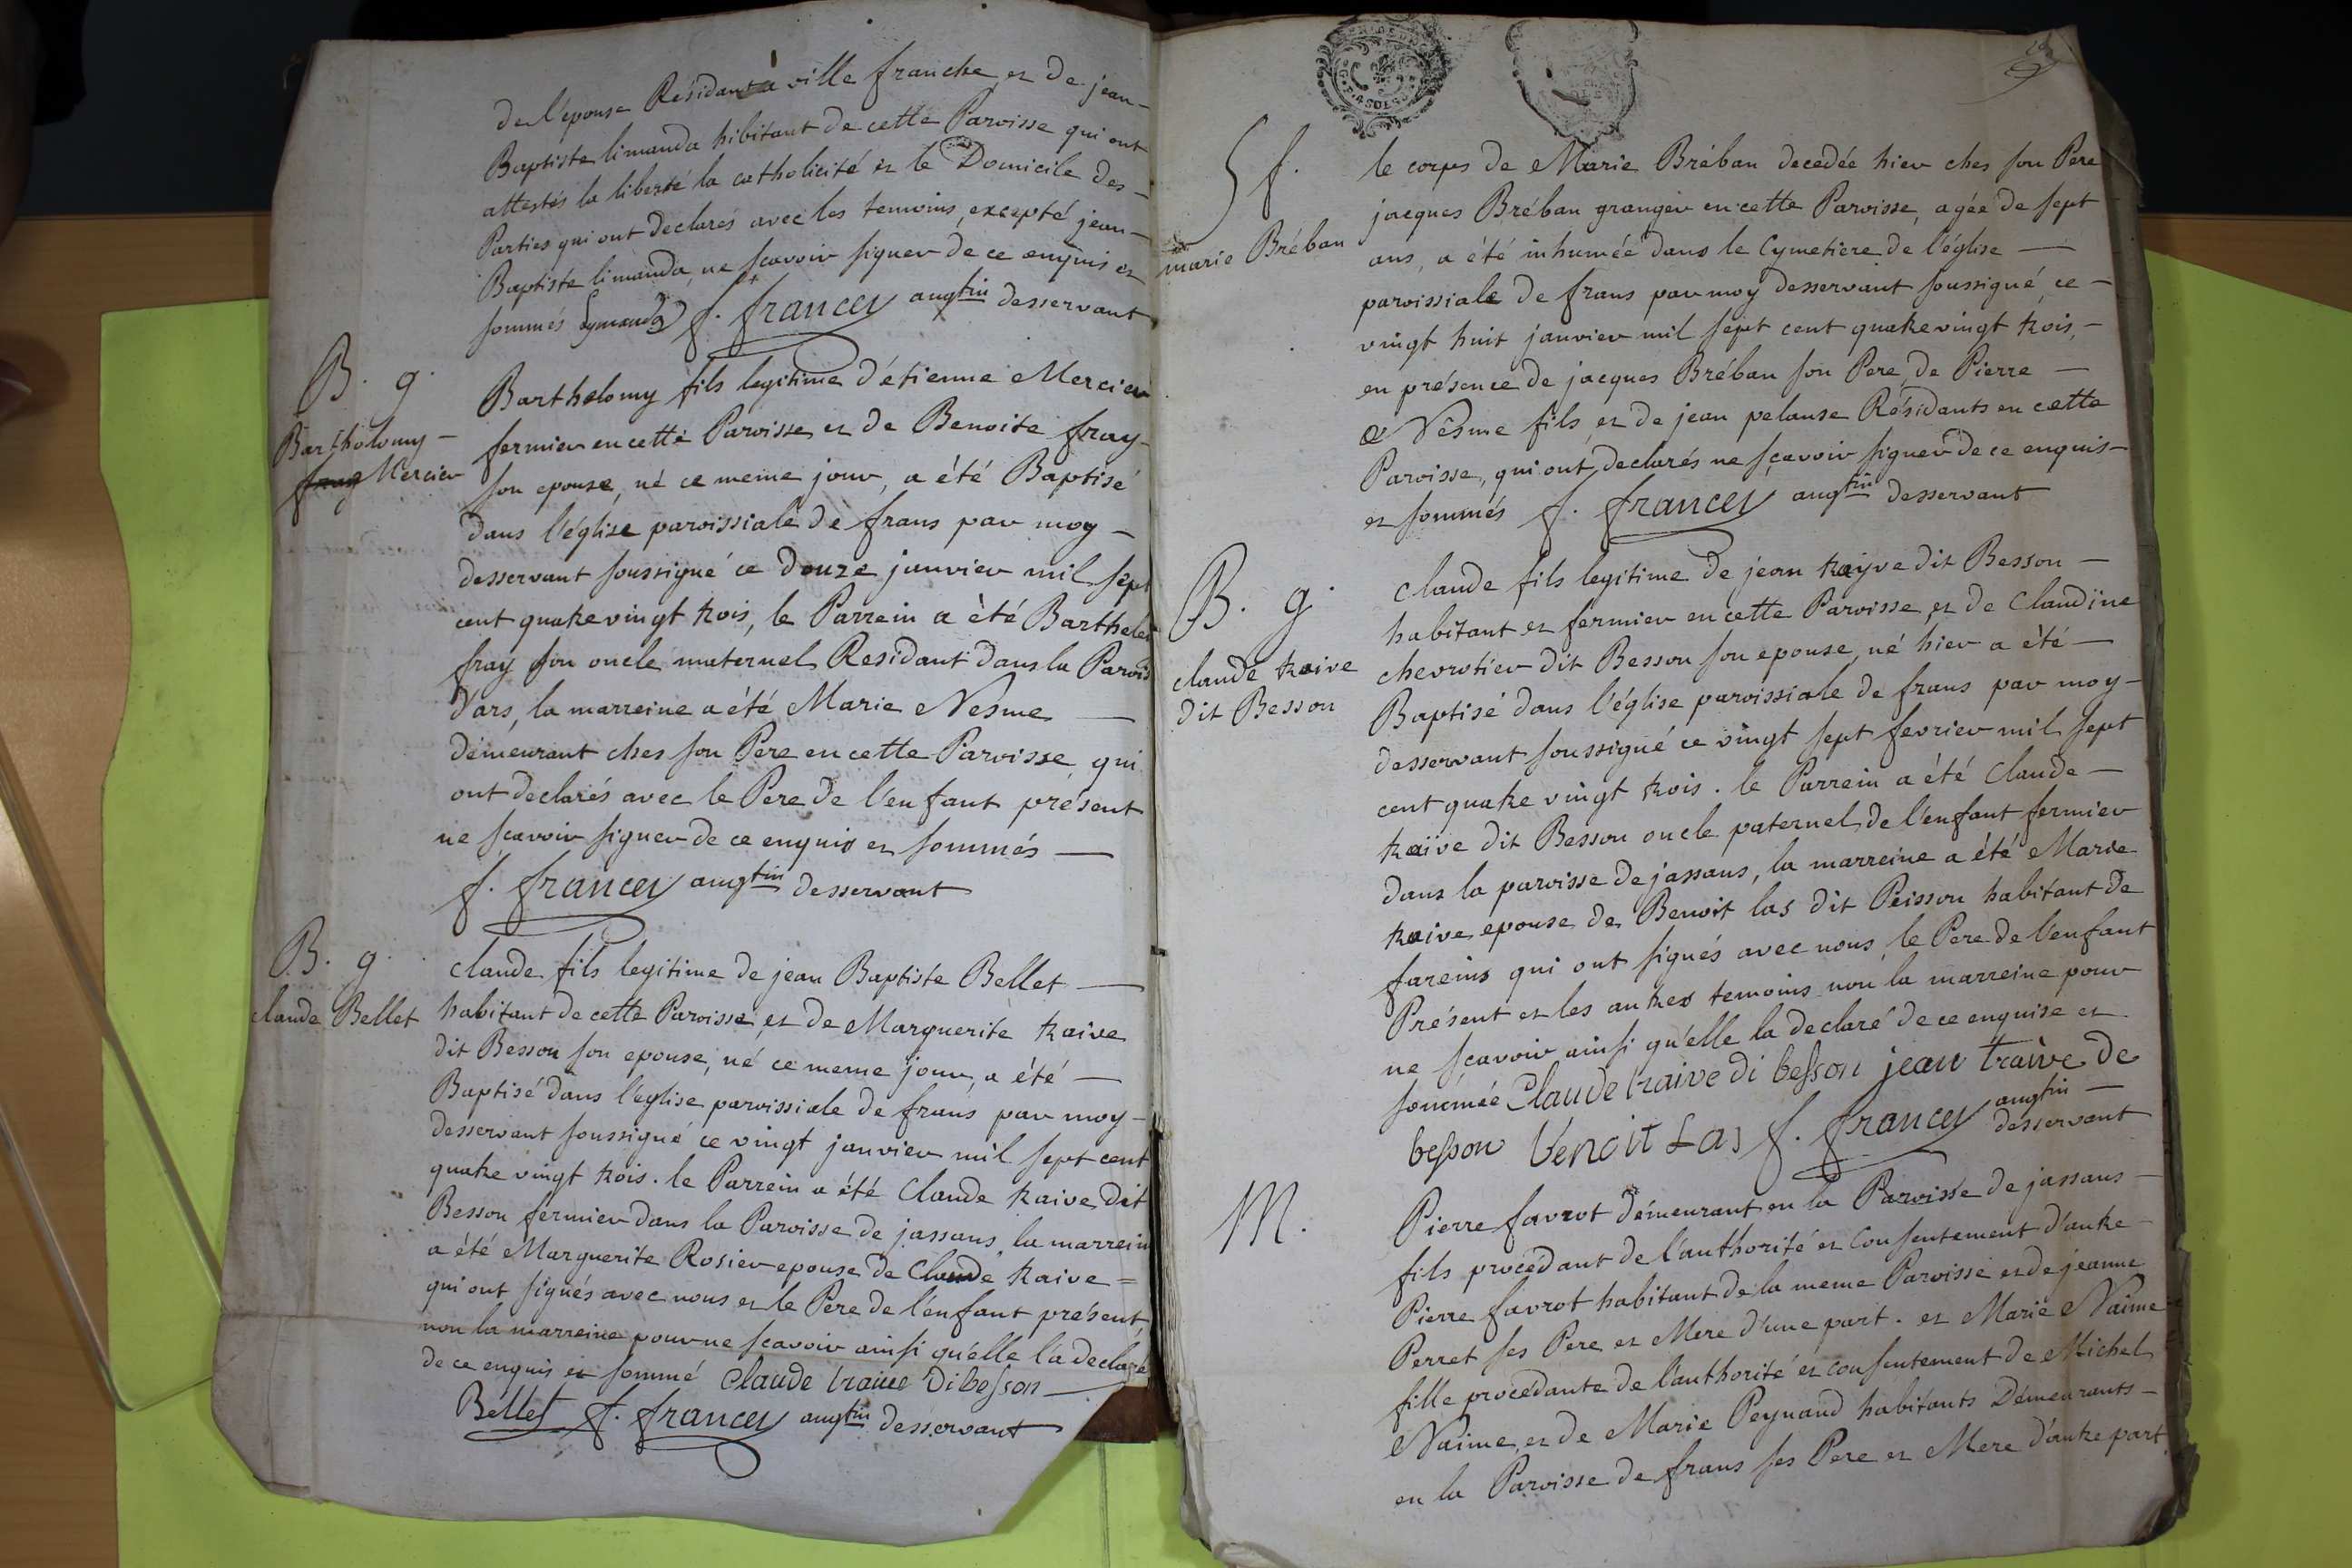 de l'épouse Résidant à ville franche, et de jean-
Baptiste limanda hibitant de cette Paroisse qui ont
attestés la liberté la catholicité et le Domicile des-
Parties qui ont declarés avec les temoins, excepté jean-
Baptiste limanda, ne sçavoir signer de ce enquis et
sommés Lymanda f. francey augtin desservant
B. g.
Bartholomy-
fray Mercier
Barthelomy fils legitime d'étienne Mercier
fermier en cette Paroisse et de Benoite fray-
son epouse, né ce meme jour, a été Baptisé
dans l'église paroissiale de frans par moy-
desservant soussigné ce douze janvier mil sept
cent quatre vingt trois, le Parrein a été Barthele
fray son oncle maternel Residant dans la Parois
d'ars, la marreine a été Marie Nesme —
demeurant ches son Pere en cette Paroisse, qui
ont declarés avec le Pere de l'enfant présent
ne sçavoir signer de ce enquis et sommés —
f. francey augtin desservant
B. g.
claude Bellet
claude fils legitime de jean Baptiste Bellet —
habitant de cette Paroisse, et de Marguerite traive
dit Besson son epouse, né ce meme jour, a été —
Baptisé dans l'église paroissiale de frans par moy-
desservant soussigné ce vingt janvier mil sept cent
quatre vingt trois. le Parrein a été Claude traive dit
Besson fermier dans la Paroisse de jassans, la marrein
a été Marguerite Rosier epouse de Claude traive =
qui ont signés avec nous et le Pere de l'enfant présent,
non la marreine pour ne sçavoir ainsi qu'elle l'a declaré
de ce enquis et sommé Claude traive di besson
Bellet f. francey augtin desservant
S f.
marie Bréban
le corps de Marie Bréban decedée hier ches son Pere
jacques Bréban granger en cette Paroisse, agée de sept
ans, a été inhumée dans le Cymetiere de l'église —
paroissiale de frans par moy desservant soussigné, ce-
vingt huit janvier mil sept cent quatre vingt trois,-
en présence de jacques Bréban son Pere, de Pierre —
Nêsme fils, et de jean pelause Résidants en cette
Paroisse, qui ont declarés ne sçavoir signer de ce enquis-
et sommés f. francey augtin desservant
B. g.
claude traive
dit Besson
Claude fils legitime de jean trayve dit Besson —
habitant et fermier en cette Paroisse, et de Claudine
chevrotier dit Besson son epouse, né hier a été —
Baptisé dans l'église paroissiale de frans par moy-
desservant soussigné ce vingt sept fevrier mil sept
cent quatre vingt trois. le Parrein a été Claude —
traive dit Besson oncle paternel de l'enfant fermier
dans la paroisse de jassans, la marreine a été Marie
traive epouse de Benoit las dit Peisson habitant de
fareins qui ont signés avec nous, le Pere de l'enfant
Présent et les autres temoins non la marreine pour
ne sçavoir ainsi qu'elle la declaré de ce enquise et
sommée Claude traive di besson jean traive de
besson benoit Las f. francey augtin —
desservant
M.
Pierre favrot demeurant en la Paroisse de jassans —
fils procédant de l'authorité et Consentement d'autre
Pierre favrot habitant de la meme Paroisse et de jeanne
Perret ses Pere et Mere d'une part. et Marie Naime
fille procédante de l'authorité et consentement de Michel
Naime, et de Marie Peynaud habitants Demeurants —
en la Paroisse de frans ses Pere et Mere d'autre part